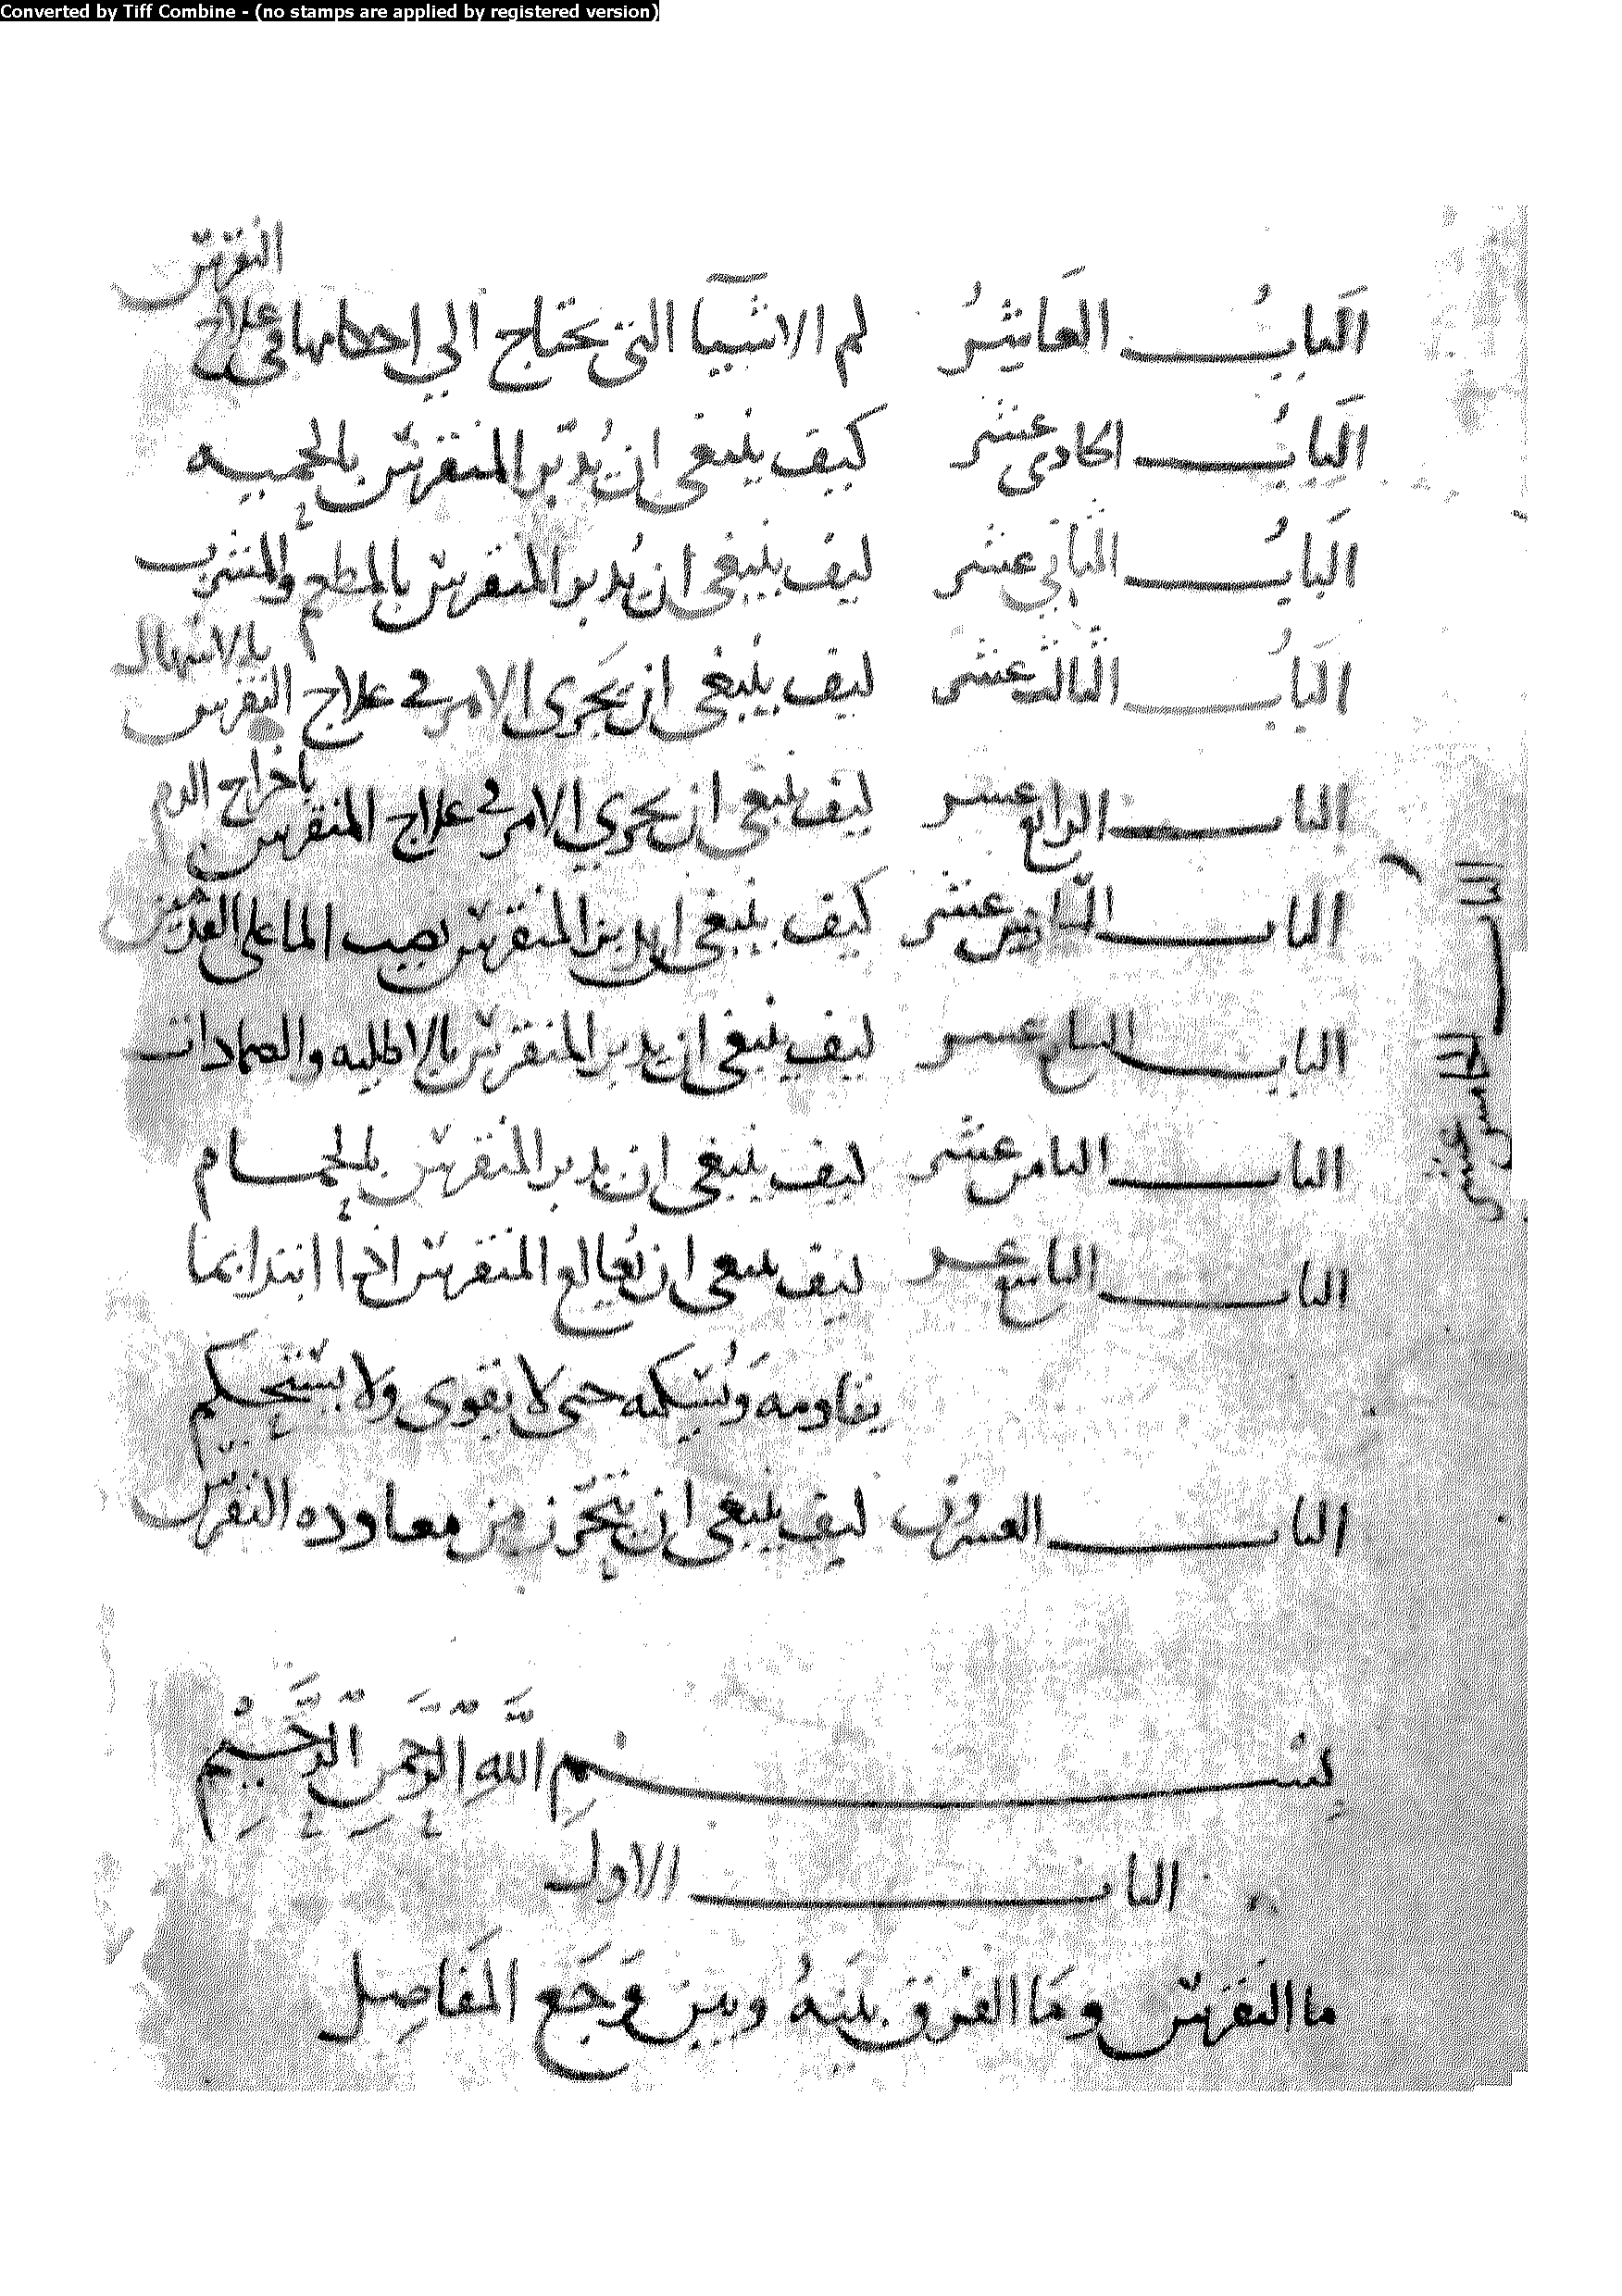 Converted by Tiff Combine - (no stamps are applied by registered version)
الباب العاشر كم الاشيا التي يحتاج الي احكامها في علاج النقرس
الباب الحادى عشر كيف ينبغى ان يدبر المنقرس بالحميه
الباب الثاني عشر كيف ينبغى ان يدبر المنقرس بالمطعم والمشرب
الباب الثالث عشر كيف ينبغى ان يجرى الامر في علاج النقرس بالاسهال
الباب الرابع عشر كيف ينبغى ان يجري الامر في علاج المنقرس باخراج الدم
الباب الخامس عشر
الباب السادس عشر كيف ينبغى ان يدبر المنقرس بصب الما على القدمين
الباب السابع عشر كيف ينبغى ان يدبر المنقرس بالاطليه والضمادات
الباب الثامن عشر كيف ينبغى ان يدبر المنقرس بالحمام
الباب التاسع عشر كيف ينبغى ان يُعالج المنقرس اذا ابتدا بما
يقاومه ويُسَكنه حتى لا يقوى ولا يستحكم
الباب العشرون كيف ينبغى ان يتحرز من معاوده النقرس
بِسْمِ اللَّهِ الرَّحمَنِ الرَّحِيْمِ
الباب الاول
ما النقرس ومَا الفرق بينَهُ وبين وَجَع المَفَاصِل